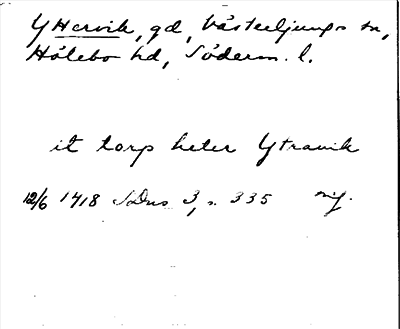 Yttervik, gd, Västerljungs sn,
Hölebo hd, Söderm. l.
it torp heter Ytravik
12/6 1418 SDns 3, s. 335